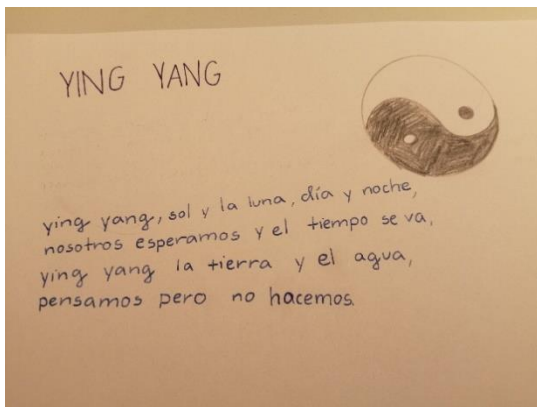 YING YANG
ying yang, sol y la luna, día y noche,
nosotros esperamos y el tiempo se va,
ying yang la tierra y el agua,
pensamos pero no hacemos.